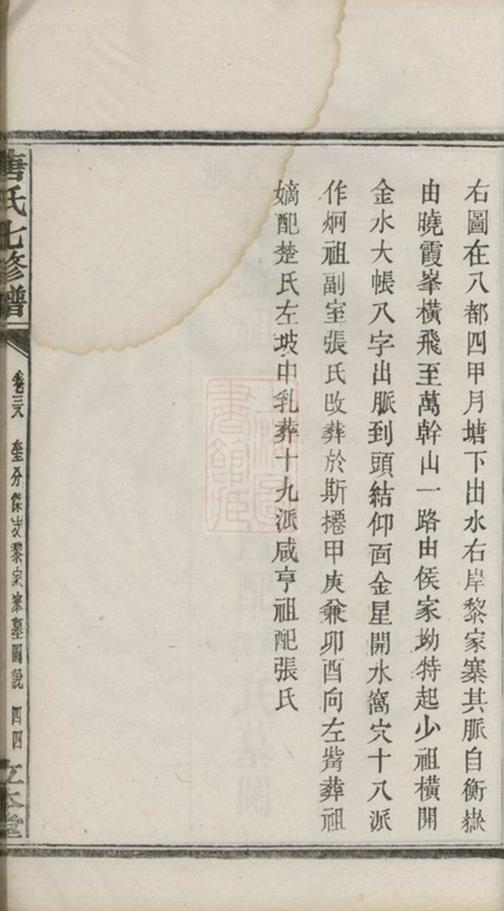 右圖在八都四甲月塘下出水右岸黎家寨其脉自衡嶽
由曉霞峯橫飛至萬幹山一路由侯家坳特起少祖橫開
金水大帳八字出脈到頭結仰面金星開水窩穴十八派
作炯祖副室張氏改葬於斯捲甲庚兼卯酉向左觜葬祖
嫡配楚氏左坡中乳葬十九派咸亨祖配張氏
唐氏七修譜
卷三八 奎分傑房黎家寨墓圖說 四四
立本堂
上海圖書館藏